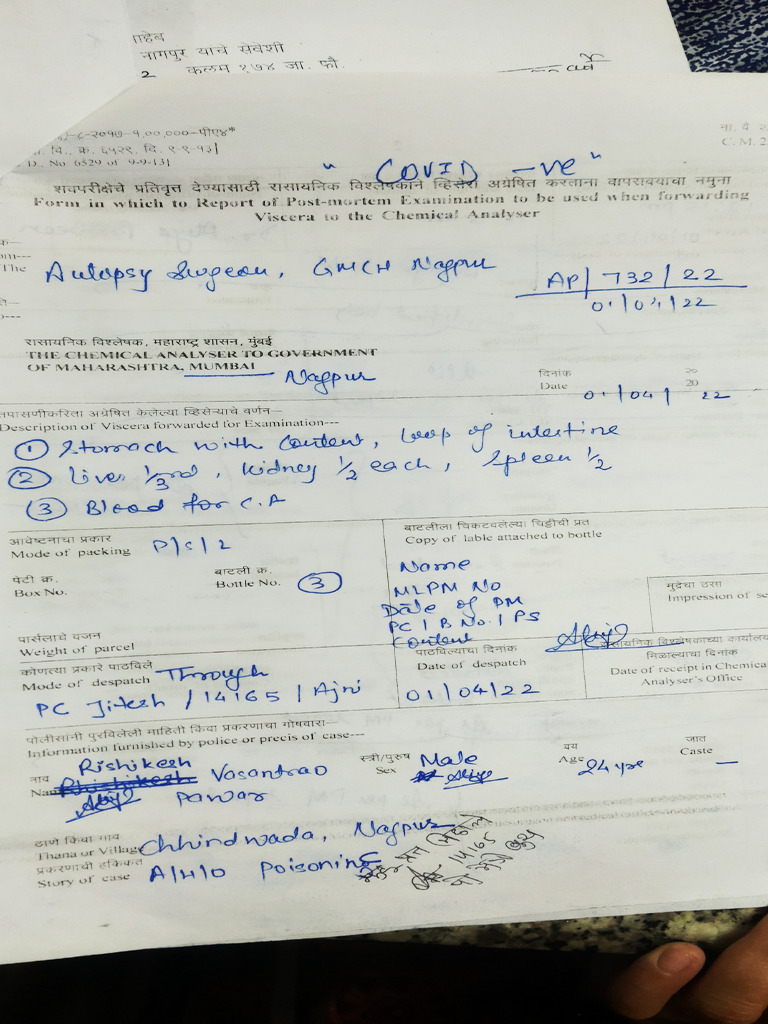 नागपुर याचे सेवेशी
2 कलम १७४ जा. फौ.
-८-२०१७-१,००,०००-पीए४*
वि. क्र. ६५२९, दि. ९-९-१३|
D., No 6529 of 9-9-13|
C. M. 2
" COVID -ve "
शवपरीक्षेचे प्रतिवृत्त देण्यासाठी रासायनिक विश्लेषकाने व्हिसेरा अग्रेषित करताना वापरावयाचा नमुना
Form in which to Report of Post-mortem Examination to be used when forwarding
Viscera to the Chemical Analyser
The Autopsy Surgeon, GMCH Nagpur
AP/732/22
01/04/22
रासायनिक विश्लेषक, महाराष्ट्र शासन, मुंबई
THE CHEMICAL ANALYSER TO GOVERNMENT
OF MAHARASHTRA, MUMBAI Nagpur
दिनांक २०
Date 01/04/ 20 22
तपासणीकरिता अग्रेषित केलेल्या व्हिसेऱ्याचे वर्णन—
Description of Viscera forwarded for Examination---
① Stomach with Content, loop of intestine
② Liver 1/3rd, Kidney 1/2 each, Spleen 1/2
③ Blood for C.A
आवेष्टनाचा प्रकार
Mode of packing P/S/2
पेटी क्र. बाटली क्र.
Box No. Bottle No. ③
बाटलीला चिकटवलेल्या चिठ्ठीची प्रत
Copy of lable attached to bottle
Name
MLPM No
Date of PM
PC / B No. / PS
Content
मुद्रेचा ठसा
Impression of se
पार्सलाचे वजन
Weight of parcel
कोणत्या प्रकारे पाठविले
Mode of despatch Through
PC Jitesh / 14165 / Ajni
पाठविल्याचा दिनांक
Date of despatch
01/04/22
रासायनिक विश्लेषकाच्या कार्यालया
मिळाल्याचा दिनांक
Date of receipt in Chemica
Analyser's Office
पोलीसांनी पुरविलेली माहिती किंवा प्रकरणाचा गोषवारा---
Information furnished by police or precis of case---
Rishikesh
नाव
Nam Rhishikesh Vasantrao
Pawar
स्त्री/पुरुष
Sex Male
वय
Age 24 yrs
जात
Caste —
ठाणे किंवा गाव
Thana or Village Chhindwada, Nagpur
प्रकरणाची हकिकत
Story of case A/H/O Poisoning
14165